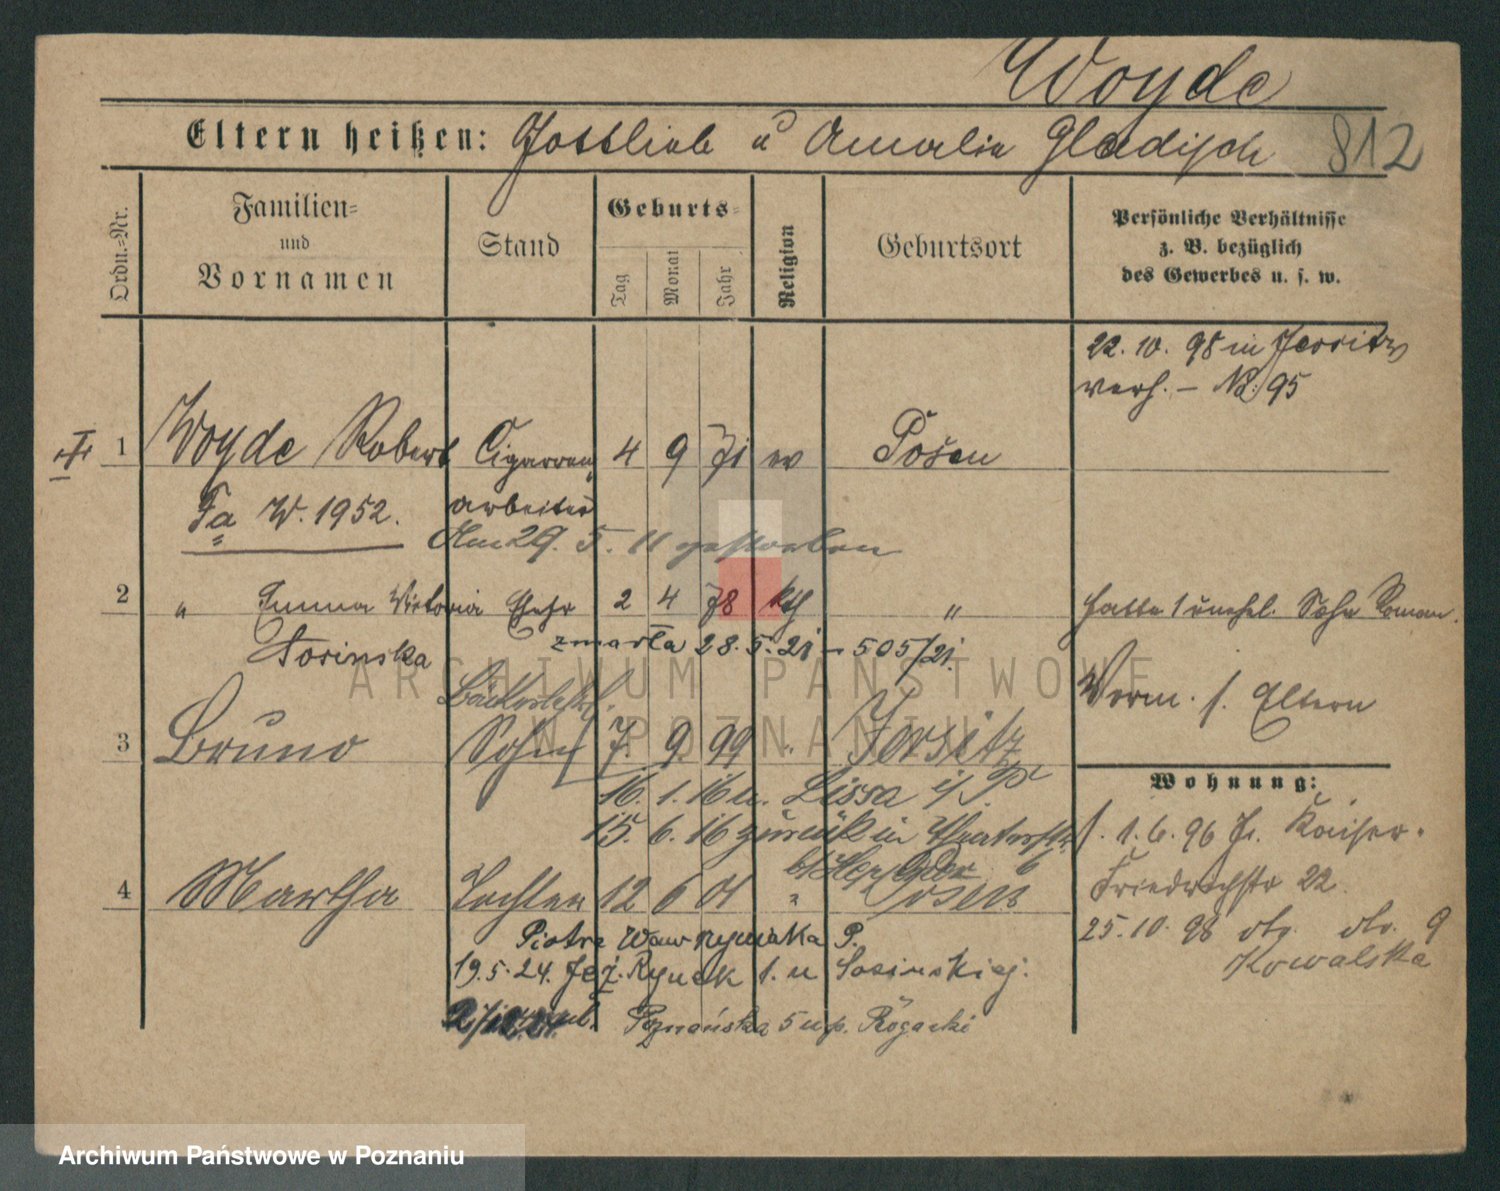 Woyde
Eltern heißen: Gottlieb u Amalie Gladisch 812
Ordn.-Nr.
Familien-
und
Vornamen
Stand
Geburts-
Tag
Monat
Jahr
Religion
Geburtsort
Persönliche Verhältnisse
z. B. bezüglich
des Gewerbes u. s. w.
22. 10. 98 in Jersitz
verh. – No: 95
1 Woyde Robert Cigarren 4 9 71 ev Posen
Fa W. 1952. arbeiter
Am 29. 5. 11 gestorben
2 " Emma Victoria Ehefr 2 4 78 kth " hatte 1 unehel. Sohn Roman.
Sosinska zmarła 28. 5. 21 – 505/21.
Verm. s. Eltern
3 Bruno Sohn 7. 9. 99 " Jersitz
16. 1. 16 n. Lissa i/P
15. 6. 16 zurück in
Wohnung:
1. 6. 96 Kaiser-
Friedrichstr 22.
4 Martha Tochter 12 6 01 " Posen
25. 10. 98 9
Kowalska
Piotra Wawrzyniaka P.
19. 5. 24. Jeż. Rynek 1. u Sosinskiej.
Poznańska 5 u p. Rogacki
ARCHIWUM PAŃSTWOWE
W POZNANIU
Archiwum Państwowe w Poznaniu